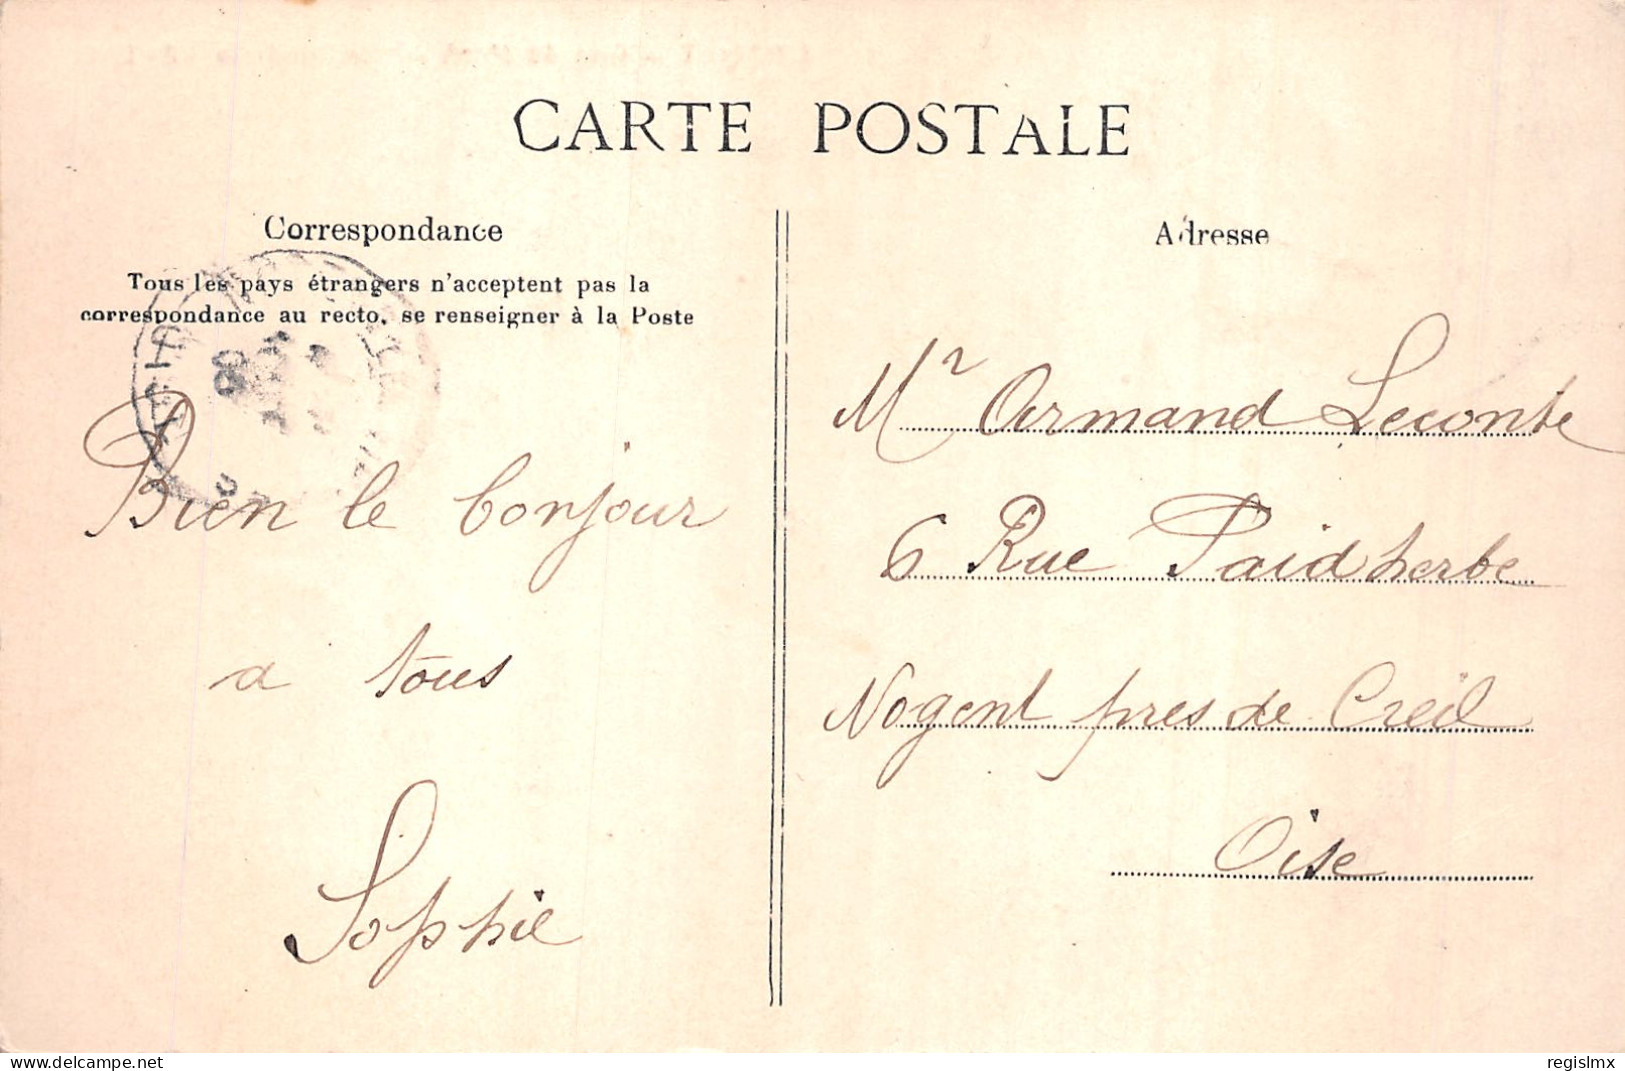 CARTE POSTALE
Correspondance
Tous les pays étrangers n'acceptent pas la
correspondance au recto, se renseigner à la Poste
Bien le bonjour
a tous
Sophie
Adresse
Mr Armand Leconte
6 Rue Faidherbe
Nogent pres de Creil
Oise
www.delcampe.net
regislmx